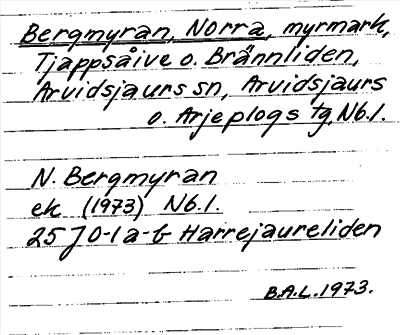 Bergmyran, Norra, myrmark,
Tjappsåive o. Brännliden,
Arvidsjaurs sn, Arvidsjaurs
o. Arjeplogs tg, Nb.l.
N. Bergmyran
ek (1973) Nb.l.
25 J 0-1 a-b Harrejaureliden
B.A.L. 1973.